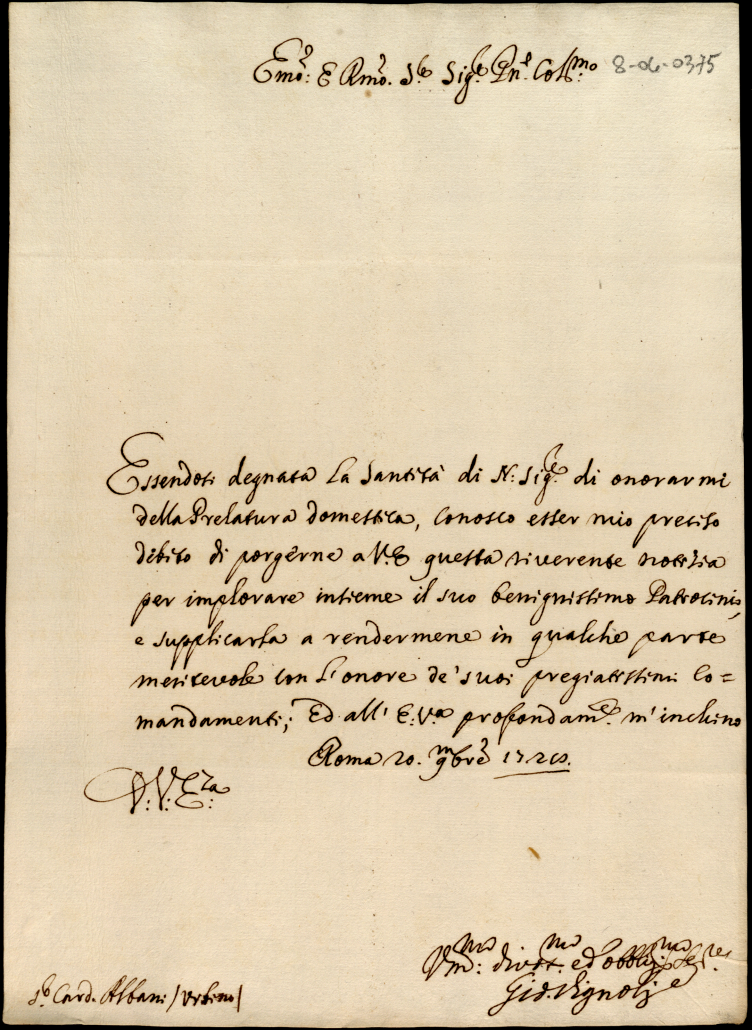 Emo: E Rmo. Sr Sigr Pne Colmo 8-06-0375
Essendosi degnata la Santità di N: Sigre di onorarmi
della Prelatura domestica, conosco esser mio preciso
debito di porgerne a V.E questa riverente notizia
per implorare insieme il suo benignissimo Patrocinio,
e supplicarla a rendermene in qualche parte
meritevole con l'onore de' suoi pregiatissimi Co=
mandamenti; Ed all' E:Va profondamte m'inchino
Roma 20. 9mbre
D.V.Eza
Vmo: divotmo ed obblgmo Sere
Gio: Vignoli
Sr Card. Albani /Urbino/